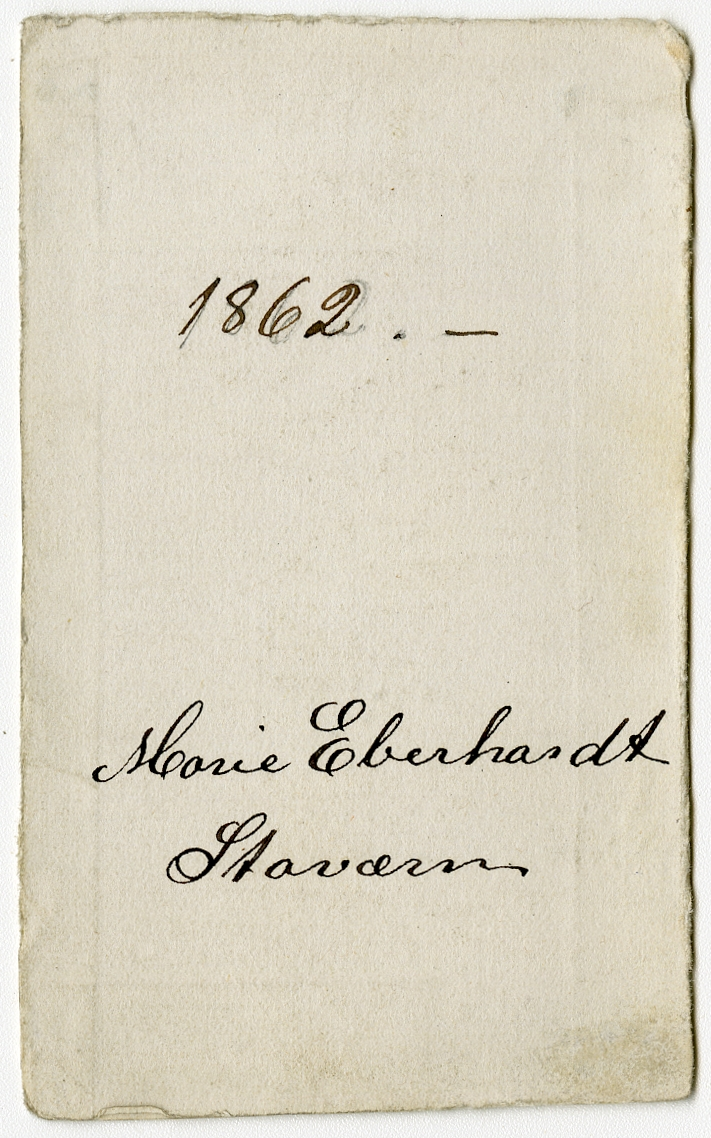 1862. —
Marie Eberhardt
Staværn